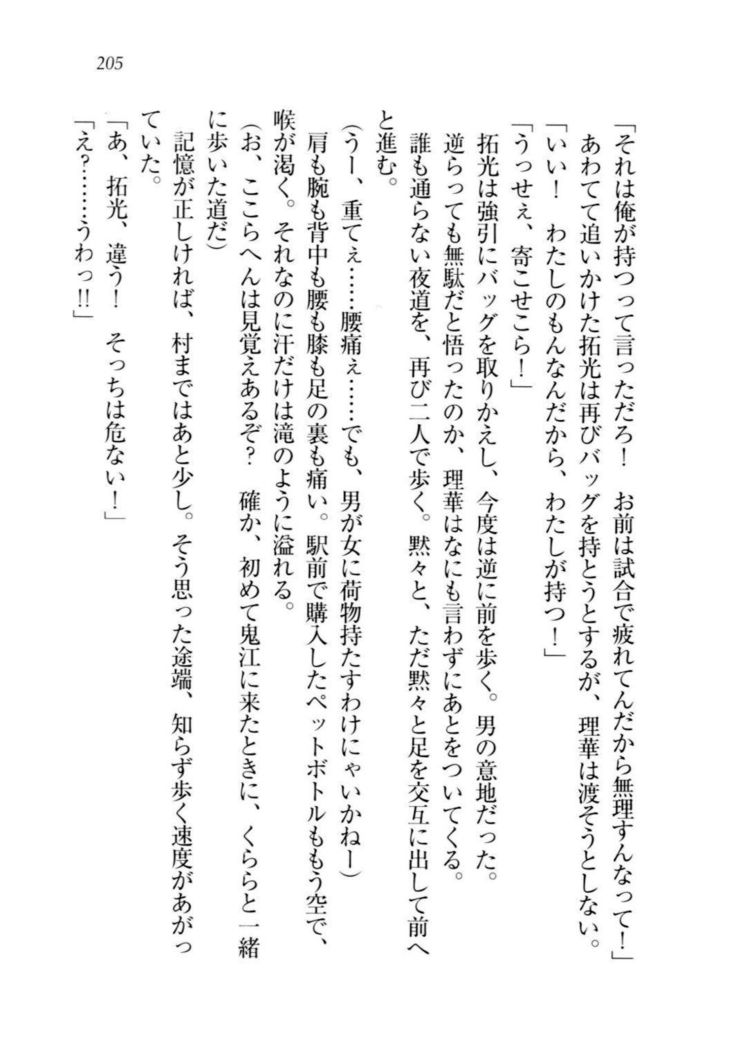 205
「それは俺が持つって言っただろ！　お前は試合で疲れてんだから無理すんなって！」
　あわてて追いかけた拓光は再びバッグを持とうとするが、理華は渡そうとしない。
「いい！　わたしのもんなんだから、わたしが持つ！」
「うっせぇ、寄こせこら！」
　拓光は強引にバッグを取りかえし、今度は逆に前を歩く。男の意地だった。
　逆らっても無駄だと悟ったのか、理華はなにも言わずにあとをついてくる。
　誰も通らない夜道を、再び二人で歩く。黙々と、ただ黙々と足を交互に出して前へ
と進む。
（うー、重てぇ……腰痛ぇ……でも、男が女に荷物持たすわけにゃいかねー）
　肩も腕も背中も腰も膝も足の裏も痛い。駅前で購入したペットボトルももう空で、
喉が渇く。それなのに汗だけは滝のように溢れる。
（お、ここらへんは見覚えあるぞ？　確か、初めて鬼江に来たときに、くららと一緒
に歩いた道だ）
　記憶が正しければ、村まではあと少し。そう思った途端、知らず歩く速度があがっ
ていた。
「あ、拓光、違う！　そっちは危ない！」
「え？……うわっ!!」